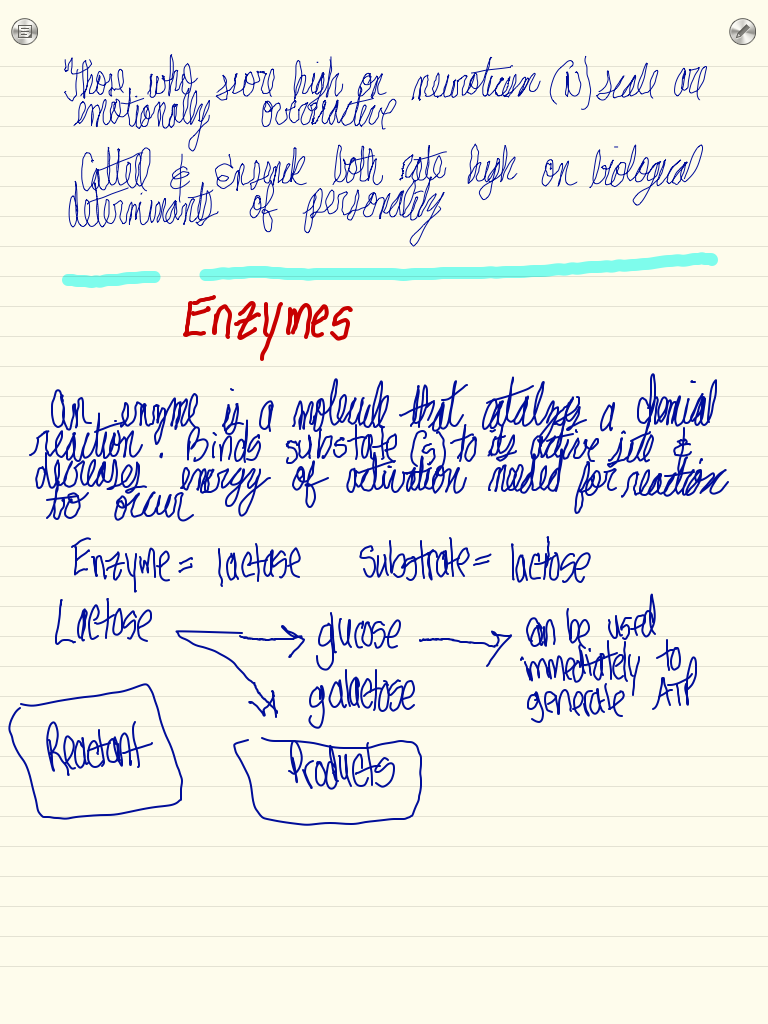 Those who score high on neuroticism (N) scale are
emotionally overreactive
Cattell & Ensenck both rate high on biological
determinants of personality
Enzymes
An enzyme is a molecule that catalyzes a chemical
reaction. Binds substate (s) to its active site &
decreases energy of activation needed for reaction
to occur
Enzyme = lactase substrate = lactose
Lactose glucose can be used
immediately to
galactose generate ATP
Reactant
Products